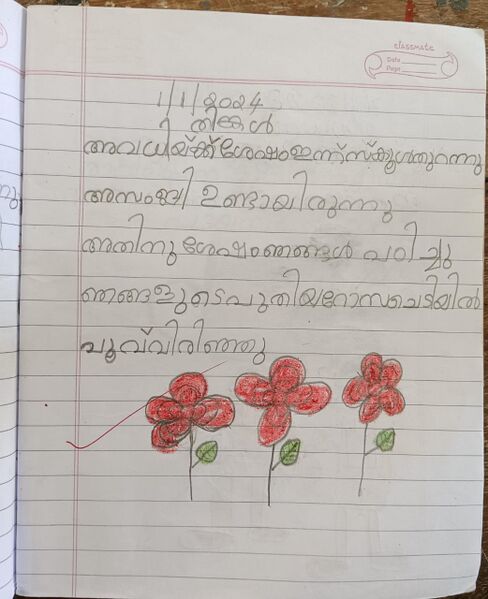 classmate
Date
Page
1/1/2024
തിങ്കൾ
അവധിയ്ക്ക് ശേഷം ഇന്ന് സ്കൂൾ തുറന്നു
അസംബ്ലി ഉണ്ടായിരുന്നു
അതിനു ശേഷം ഞങ്ങൾ പഠിച്ചു
ഞങ്ങളുടെ പുതിയ റോസ ചെടിയിൽ
പൂവ് വിരിഞ്ഞു